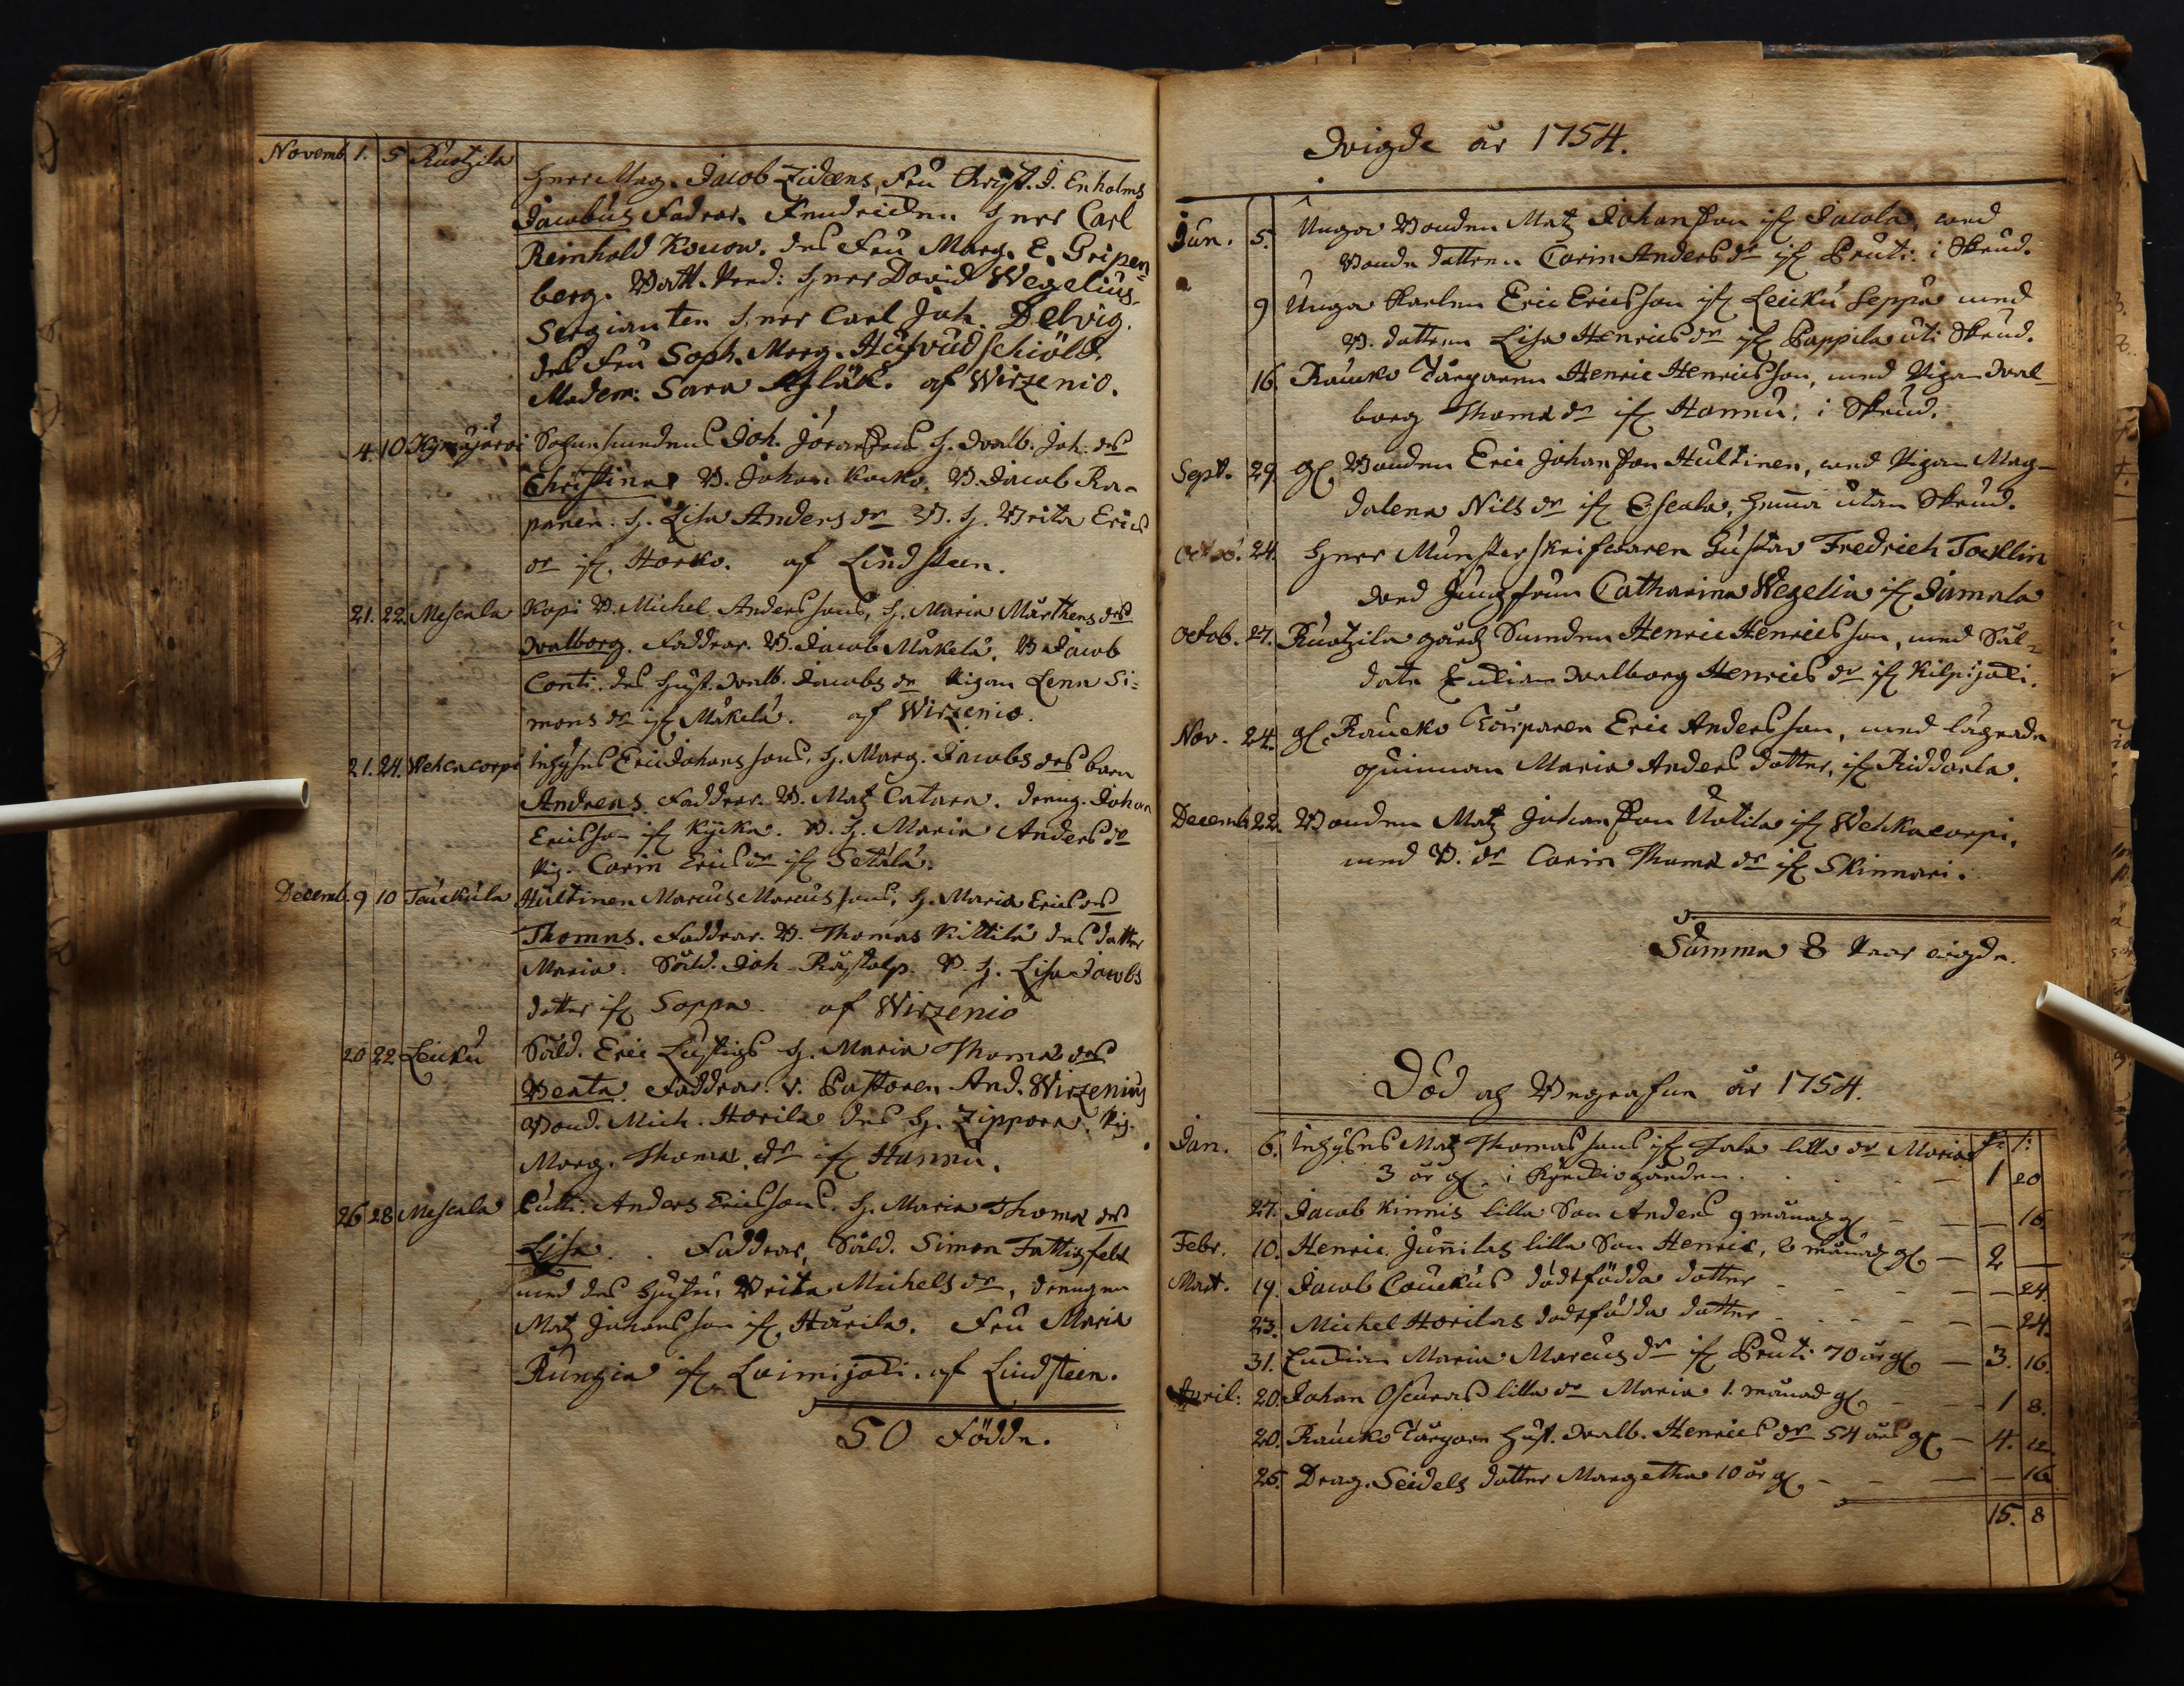 Novemb. 1. 5 Ruotzila
Herr Mag. Jacob Zidæns, Fru Christ. J. Enholms
Jacobus Fadrar. Fendricken Herr Carl
Reinhold Konow. des Fru Marg. E. Gripen
berg. Herr David Wegelius
Sergianten Herr Carl Joh. Delvig.
des Fru Soph. Marg. Hufvudschiöld.
Madem: Sara af Wirzenio.
4. 10 Kijmäjärvi Joh. Jöranssons h. Walb. Joh. drs
Christina B. Johan Kocko. B. Jacob Ra-
panen. h. Lisa Anders dr B. h. Brita Erics
dr if. Horko. af Lindsteen.
21. 22. Mescala Kopi B. Michel Anderssons, h. Maria Mårthens drs
Walborg. Faddrar. B. Jacob Mäkelä. B. Jacob
Conti. des Hust. Walb. Jacobs dr Pigan Lena Si-
mons dr if. Mäkelä. af Wirzenio.
21. 24. Wehcacorpi Inhyses Eric Johanssons, h. Marg. Jacobs drs barn
Andreas Faddrar. B. Matz Catara. dreng. Johan
Ericsson if. Kycka. B. h. Maria Anders dr
Pig. Carin Erics dr if. Setälä.
Decemb. 9 10 Tauckula Hultinen Marcus Marcussons, h. Maria Erics drs
Thomas. Faddrar. B. Thomas Kittilä des dotter
Maria. Sold. Joh. B. h. Lisa Jacobs
dotter if. Soppa. af Wirzenio
20 22 Leucku Sold. Eric Lustigs h. Maria Thomæ drs
Beata Faddrar. v. Pastoren And. Wirzenius
Bond. Mich. Horila des h. Zippora. Pig.
Marg. Thomæ dr if. Hannu.
26 28 Mescala Culti: Anders Ericssons. h. Maria Thomæ drs
Lisa. . Faddrar, Sold. Simon Fattigfelt
med des Hustru Brita Michels dr, drengen
Matz Johansson if. Hårila. Fru Maria
Rungia if. Loimijoki. af Lindsteen.
50 Födde.
Wigde år 1754.
Jun. 5. Unga Bonden Matz Johansson if. Jacola, med
Bonde dottren Carin Anders dr if. Pruti: i Skrud.
9 Unga Karlen Eric Ericsson if. Leucku Seppä med
B. dottren Lisa Henrics dr if. Pappila uti Skrud.
16. Raucko Torparen Henric Henricsson, med Pigan Wal-
borg Thomæ dr if. Hannu; i Skrud.
Sept. 29. gl. Bonden Eric Johansson Hultinen, med Pigan Mag-
dalena Nils dr if. Escala, hemma utan Skrud.
Octob. 24. Herr Munsterskrifwaren Gustav Fredrich Toellin
med Jungfrun Catharina Wegelia if. Jamala
Octob. 27. Ruotzila gårds Henric Henricsson, med Sol-
date Enckian Walborg Henrics dr if. Kilpijoki.
Nov. 24. gl. Raucko Torparen Eric Andersson, med lägrade
quinnan Maria Anders dotter, if. Riddarla.
Decemb. 22. Bonden Matz Johansson Uotila if. Wehkacorpi.
med B. dr Carin Thomæ dr if. Skinnari.
Summa 8 Paar wigde.
Död og Begrafne år 1754.
Jan. 6. Inhyses Matz Thomassons if. Jala lilla dr Maria
3 år gl. i Kyrckiogården. 1 20
27. Jacob Kinnis lilla Son Anders 9 månad gl — — 16.
Febr. 10. Henric Junnilas lilla Son Henric, 2 månad gl — 2 —
Mart. 19. Jacob Couckus dödfödda dotter — — 24
23. Michel Horilas dödfödda dotter — — 24.
31. Enckian Maria Marcus dr if. Pruti 70 år gl — 3. 16.
April: 20. Johan Oscuras lilla dr Maria 1. månad gl — 1 8.
20. Raucko Torparn Hust. Walb. Henrics dr 54 års gl — 4. 12
25. Drag. Seidels dotter Margetha 10 år gl — — 16
15. 8